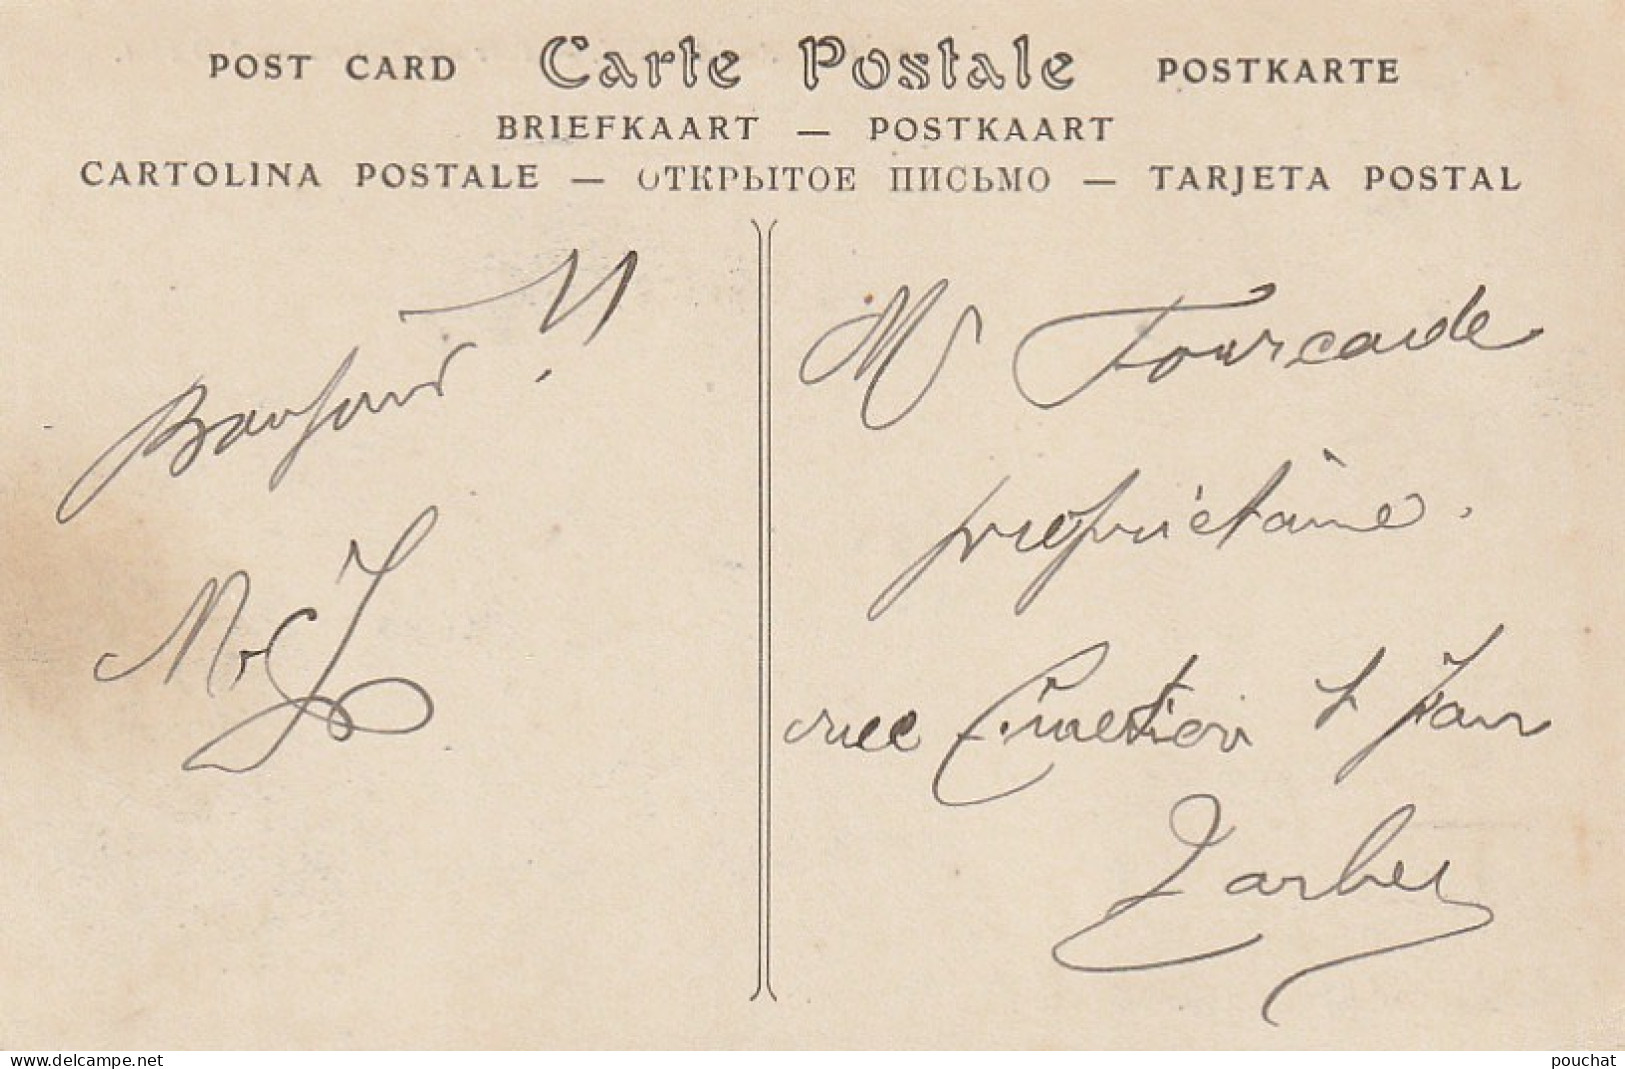 POST CARD Carte Postale POSTKARTE
BRIEFKAART — POSTKAART
CARTOLINA POSTALE — ОТКРЫТОЕ ПИСЬМО — TARJETA POSTAL
Mr Fourcade
propriétaire.
rue St Jean
Tarbes
www.delcampe.net
pouchat